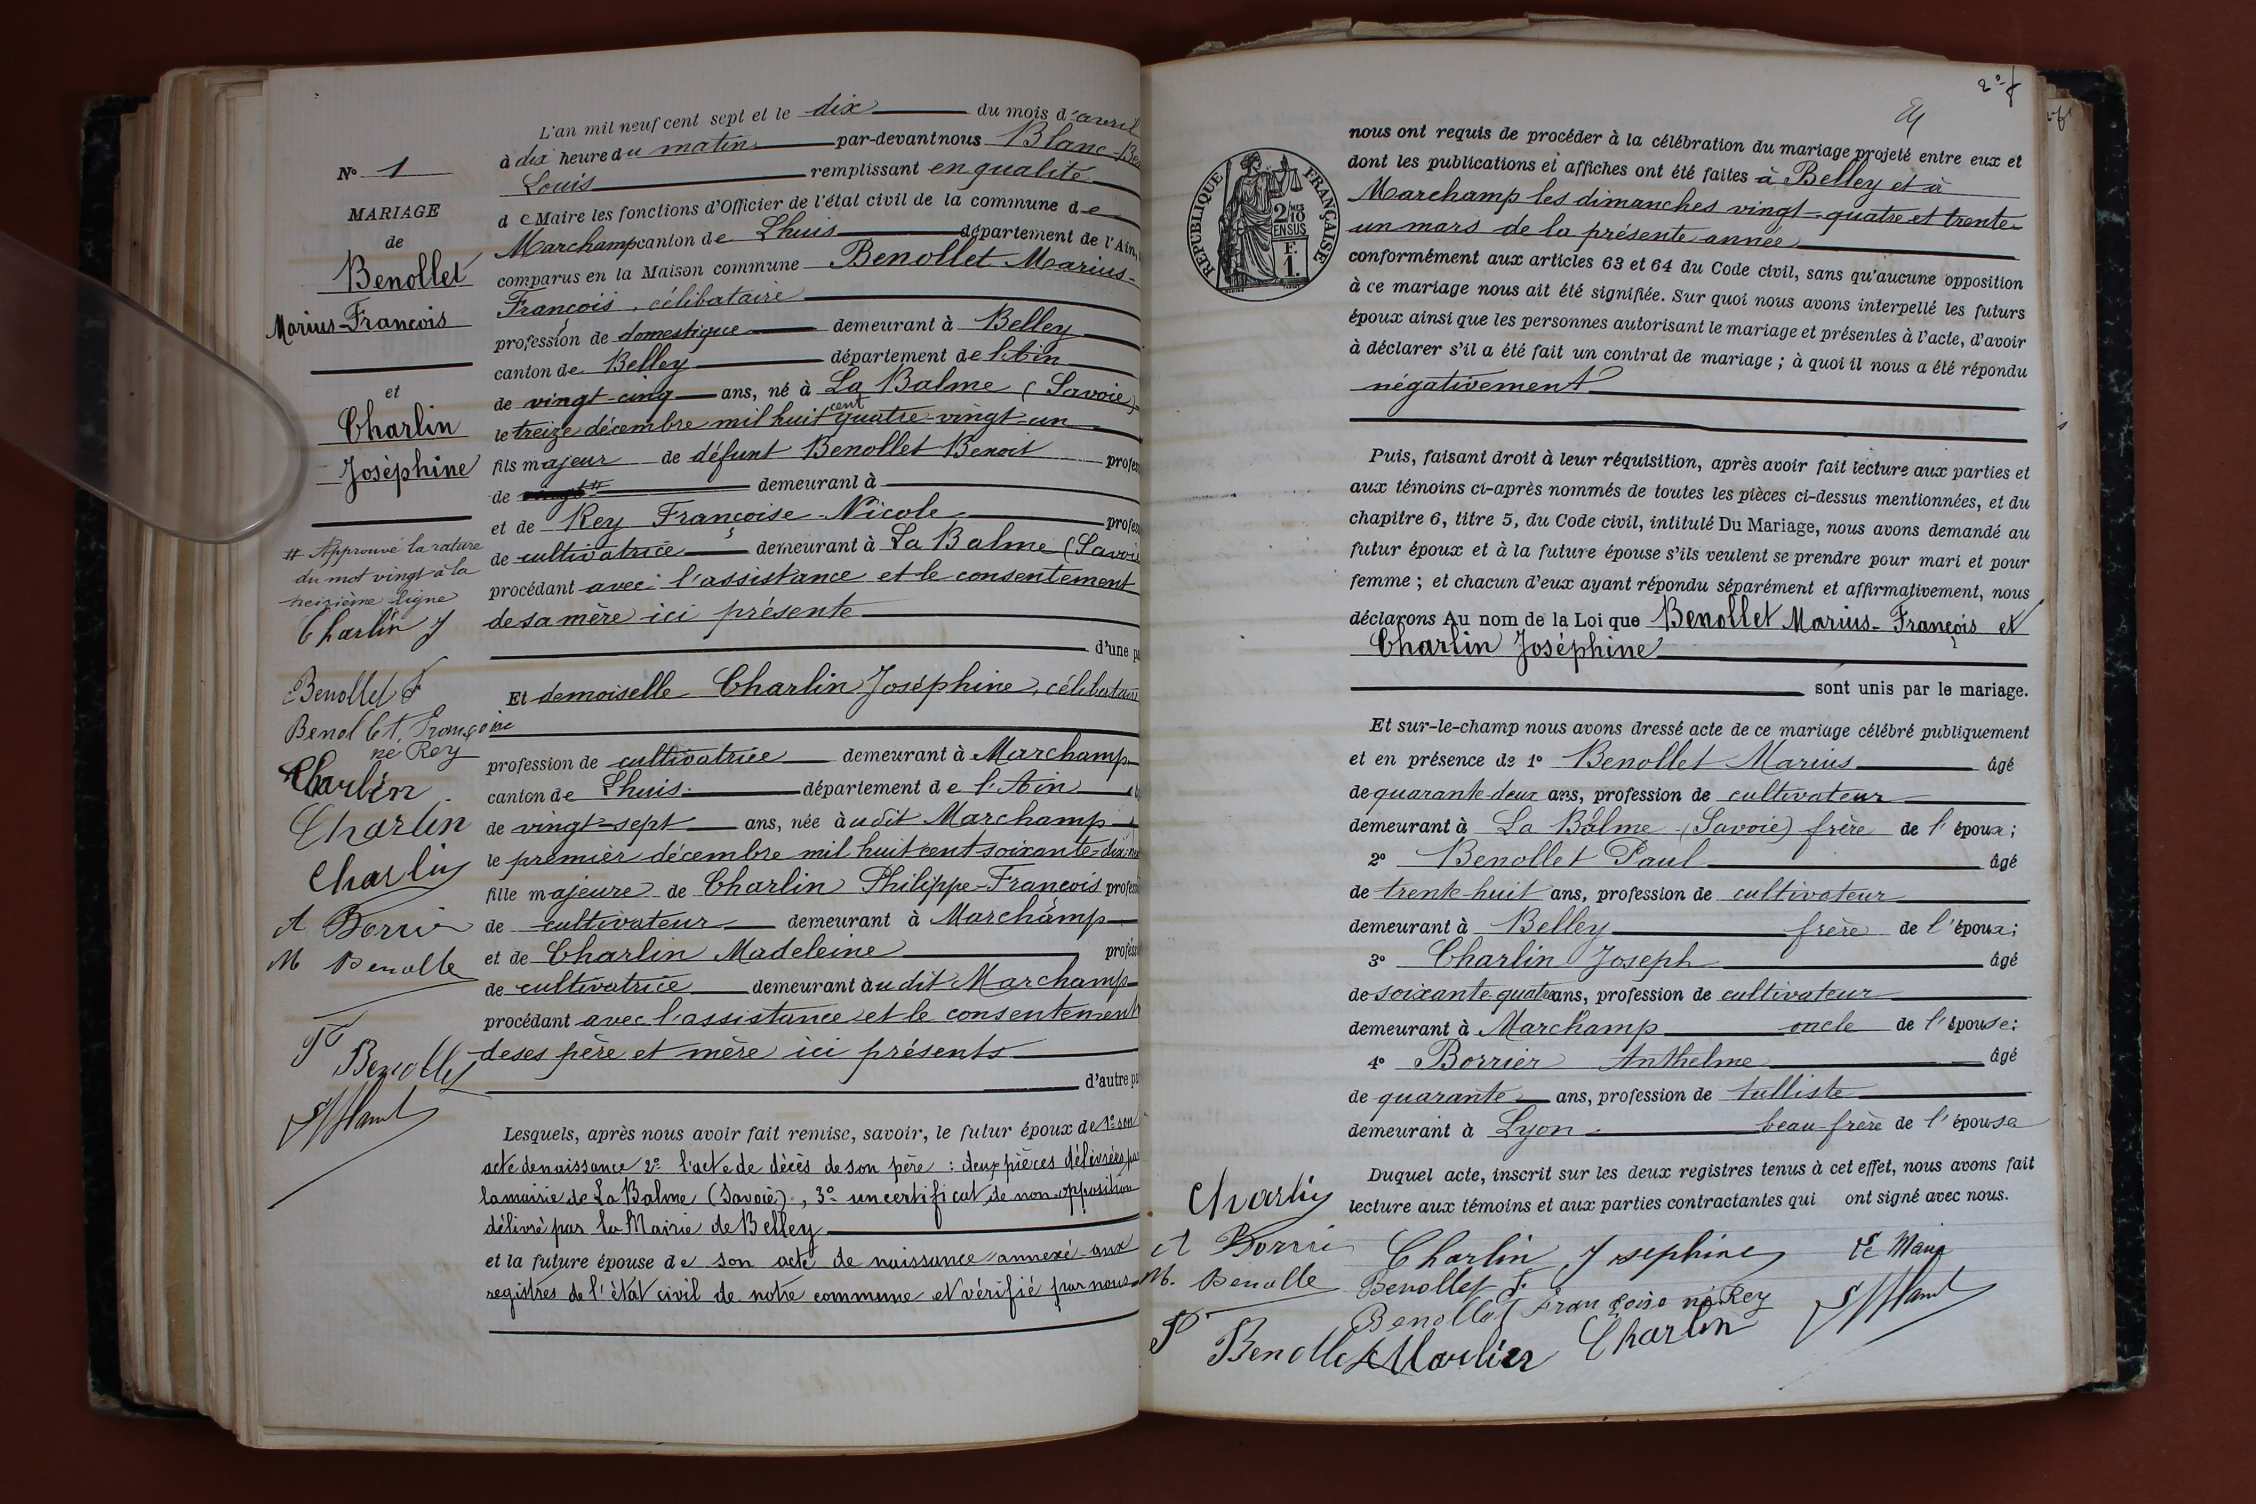 N° 1
MARIAGE
de
Benollet
Marius-François
et
Charlin
Joséphine
# Approuvé la rature
du mot vingt à la
treizième ligne
Charlin J
Benollet F
Benollet Françoise
né Rey
Charlin
Charlin
Charlin
A Borrier
M Benolle
P
Benollet
L'an mil neuf cent sept et le dix du mois d'avril
à dix heure du matin par-devant nous Blanc-
Louis remplissant en qualité
de Maire les fonctions d'Officier de l'état civil de la commune de
Marchamp canton de Lhuis département de l'Ain,
comparus en la Maison commune Benollet Marius-
François, célibataire
profession de domestique demeurant à Belley
canton de Belley département de l'Ain
de vingt-cinq ans, né à La Balme (Savoie)
le treize décembre mil huit cent quatre-vingt-un
fils majeur de défunt Benollet Benoit profes
de vingt # demeurant à
et de Rey Françoise-Nicole profes
de cultivatrice demeurant à La Balme (Savoie
procédant avec l'assistance et le consentement
de sa mère ici présente
d'une pa
Et demoiselle Charlin Joséphine, célibataire
profession de cultivatrice demeurant à Marchamp
canton de Lhuis département de l'Ain
de vingt-sept ans, née àudit Marchamp
le premier décembre mil huit cent soixante-dix-neuf
fille majeure de Charlin Philippe-François profess
de cultivateur demeurant à Marchamp
et de Charlin Madeleine profess
de cultivatrice demeurant àudit Marchamp
procédant avec l'assistance et le consentement
de ses père et mère ici présents
d'autre pa
Lesquels, après nous avoir fait remise, savoir, le futur époux de 1° son
acte de naissance 2° l'acte de décès de son père : deux pièces délivrées par
la mairie de La Balme (Savoie), 3° un certificat de non-opposition
délivré par la Mairie de Belley
et la future épouse de son acte de naissance annexé aux
registres de l'état civil de notre commune et vérifié par nous
2
REPUBLIQUE FRANÇAISE
2/10
EN SUS
F.
1.
nous ont requis de procéder à la célébration du mariage projeté entre eux et
dont les publications et affiches ont été faites à Belley et à
Marchamp les dimanches vingt-quatre et trente-
un mars de la présente année
conformément aux articles 63 et 64 du Code civil, sans qu'aucune opposition
à ce mariage nous ait été signifiée. Sur quoi nous avons interpellé les futurs
époux ainsi que les personnes autorisant le mariage et présentes à l'acte, d'avoir
à déclarer s'il a été fait un contrat de mariage ; à quoi il nous a été répondu
négativement
Puis, faisant droit à leur réquisition, après avoir fait lecture aux parties et
aux témoins ci-après nommés de toutes les pièces ci-dessus mentionnées, et du
chapitre 6, titre 5, du Code civil, intitulé Du Mariage, nous avons demandé au
futur époux et à la future épouse s'ils veulent se prendre pour mari et pour
femme ; et chacun d'eux ayant répondu séparément et affirmativement, nous
déclarons Au nom de la Loi que Benollet Marius-François et
Charlin Joséphine
sont unis par le mariage.
Et sur-le-champ nous avons dressé acte de ce mariage célébré publiquement
et en présence de 1° Benollet Marius âgé
de quarante-deux ans, profession de cultivateur
demeurant à La Balme (Savoie) frère de l'époux;
2° Benollet Paul âgé
de trente-huit ans, profession de cultivateur
demeurant à Belley frère de l'époux;
3° Charlin Joseph âgé
de soixante-quatre ans, profession de cultivateur
demeurant à Marchamp oncle de l'épouse;
4° Borrier Anthelme âgé
de quarante ans, profession de tulliste
demeurant à Lyon beau-frère de l'épouse
Duquel acte, inscrit sur les deux registres tenus à cet effet, nous avons fait
lecture aux témoins et aux parties contractantes qui ont signé avec nous.
Charlin
A Borrier Charlin Josephine Le Maire
M. Benolle Benollet F.
Benollet Françoise né Rey
P Benollet Charlin Charlin